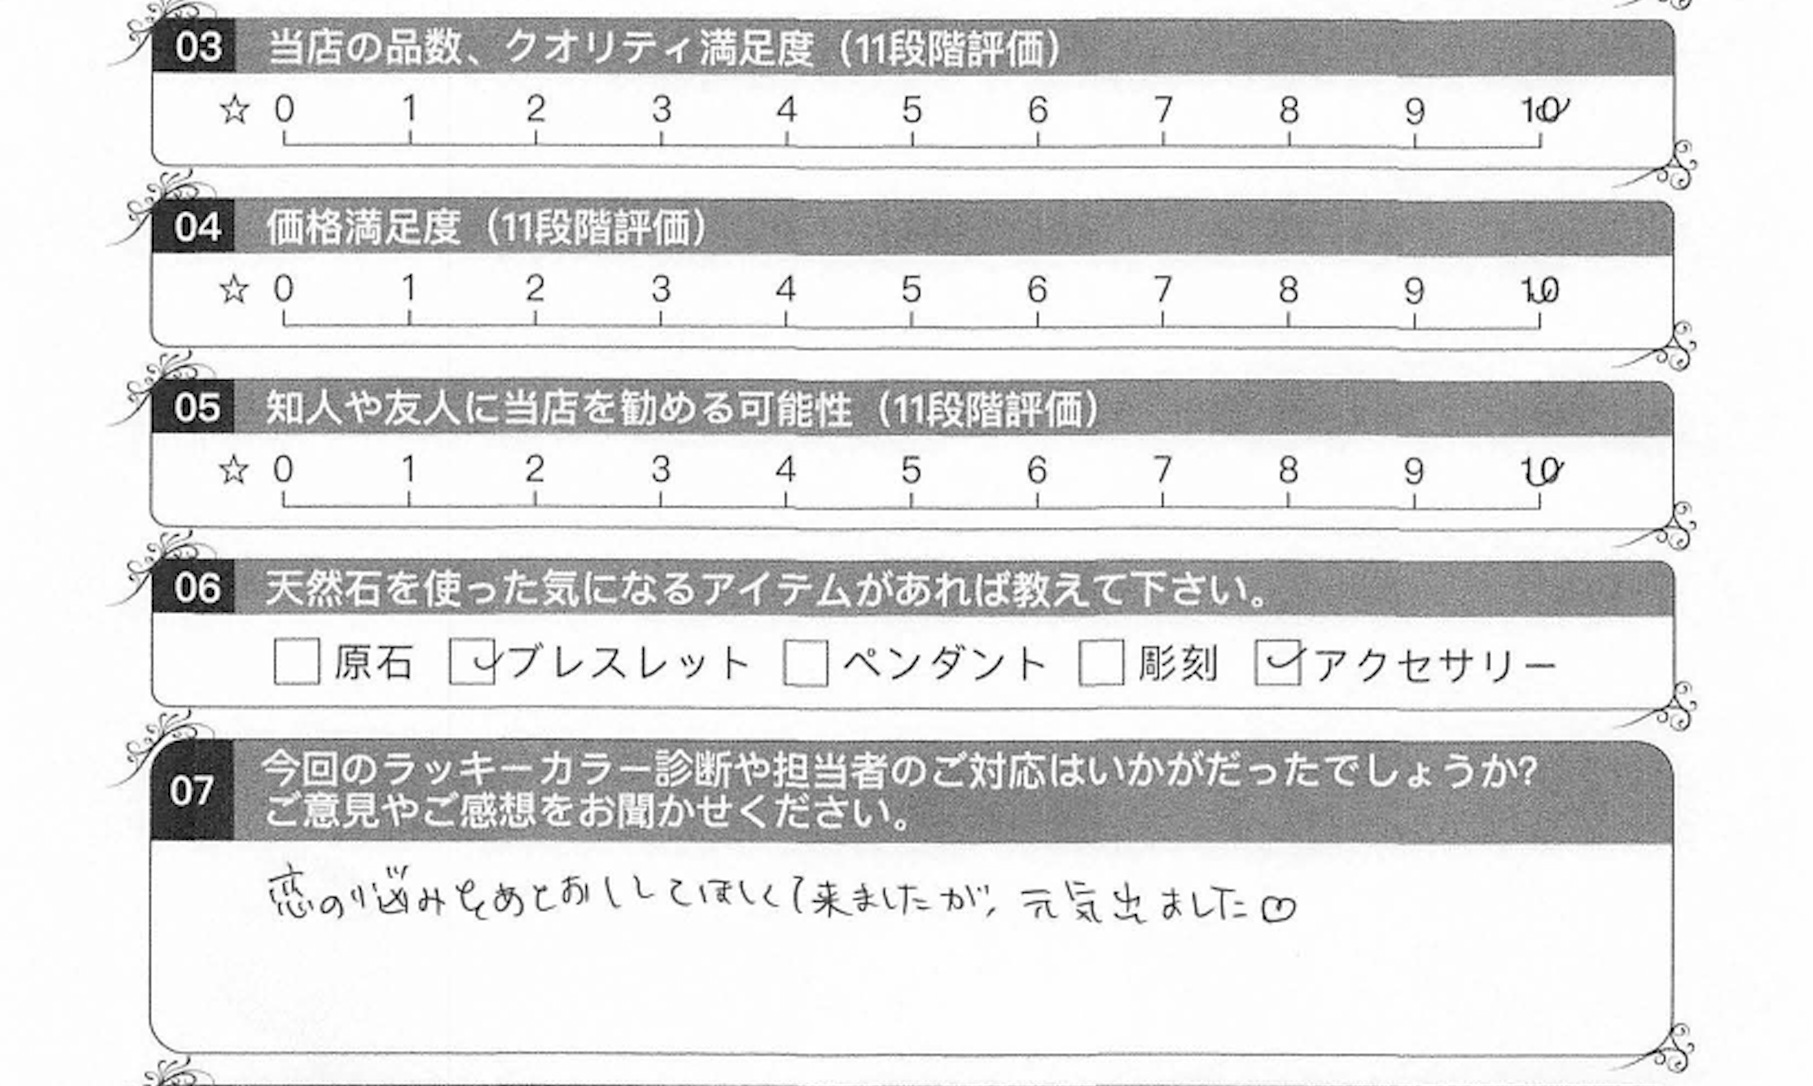 03 当店の品数、クオリティ満足度（11段階評価）
☆ 0 1 2 3 4 5 6 7 8 9 10
04 価格満足度（11段階評価）
☆ 0 1 2 3 4 5 6 7 8 9 10
05 知人や友人に当店を勧める可能性（11段階評価）
☆ 0 1 2 3 4 5 6 7 8 9 10
06 天然石を使った気になるアイテムがあれば教えて下さい。
原石 ブレスレット ペンダント 彫刻 アクセサリー
07 今回のラッキーカラー診断や担当者のご対応はいかがだったでしょうか?
ご意見やご感想をお聞かせください。
恋の悩みをあとおししてほしくて来ましたが、元気出ました♡